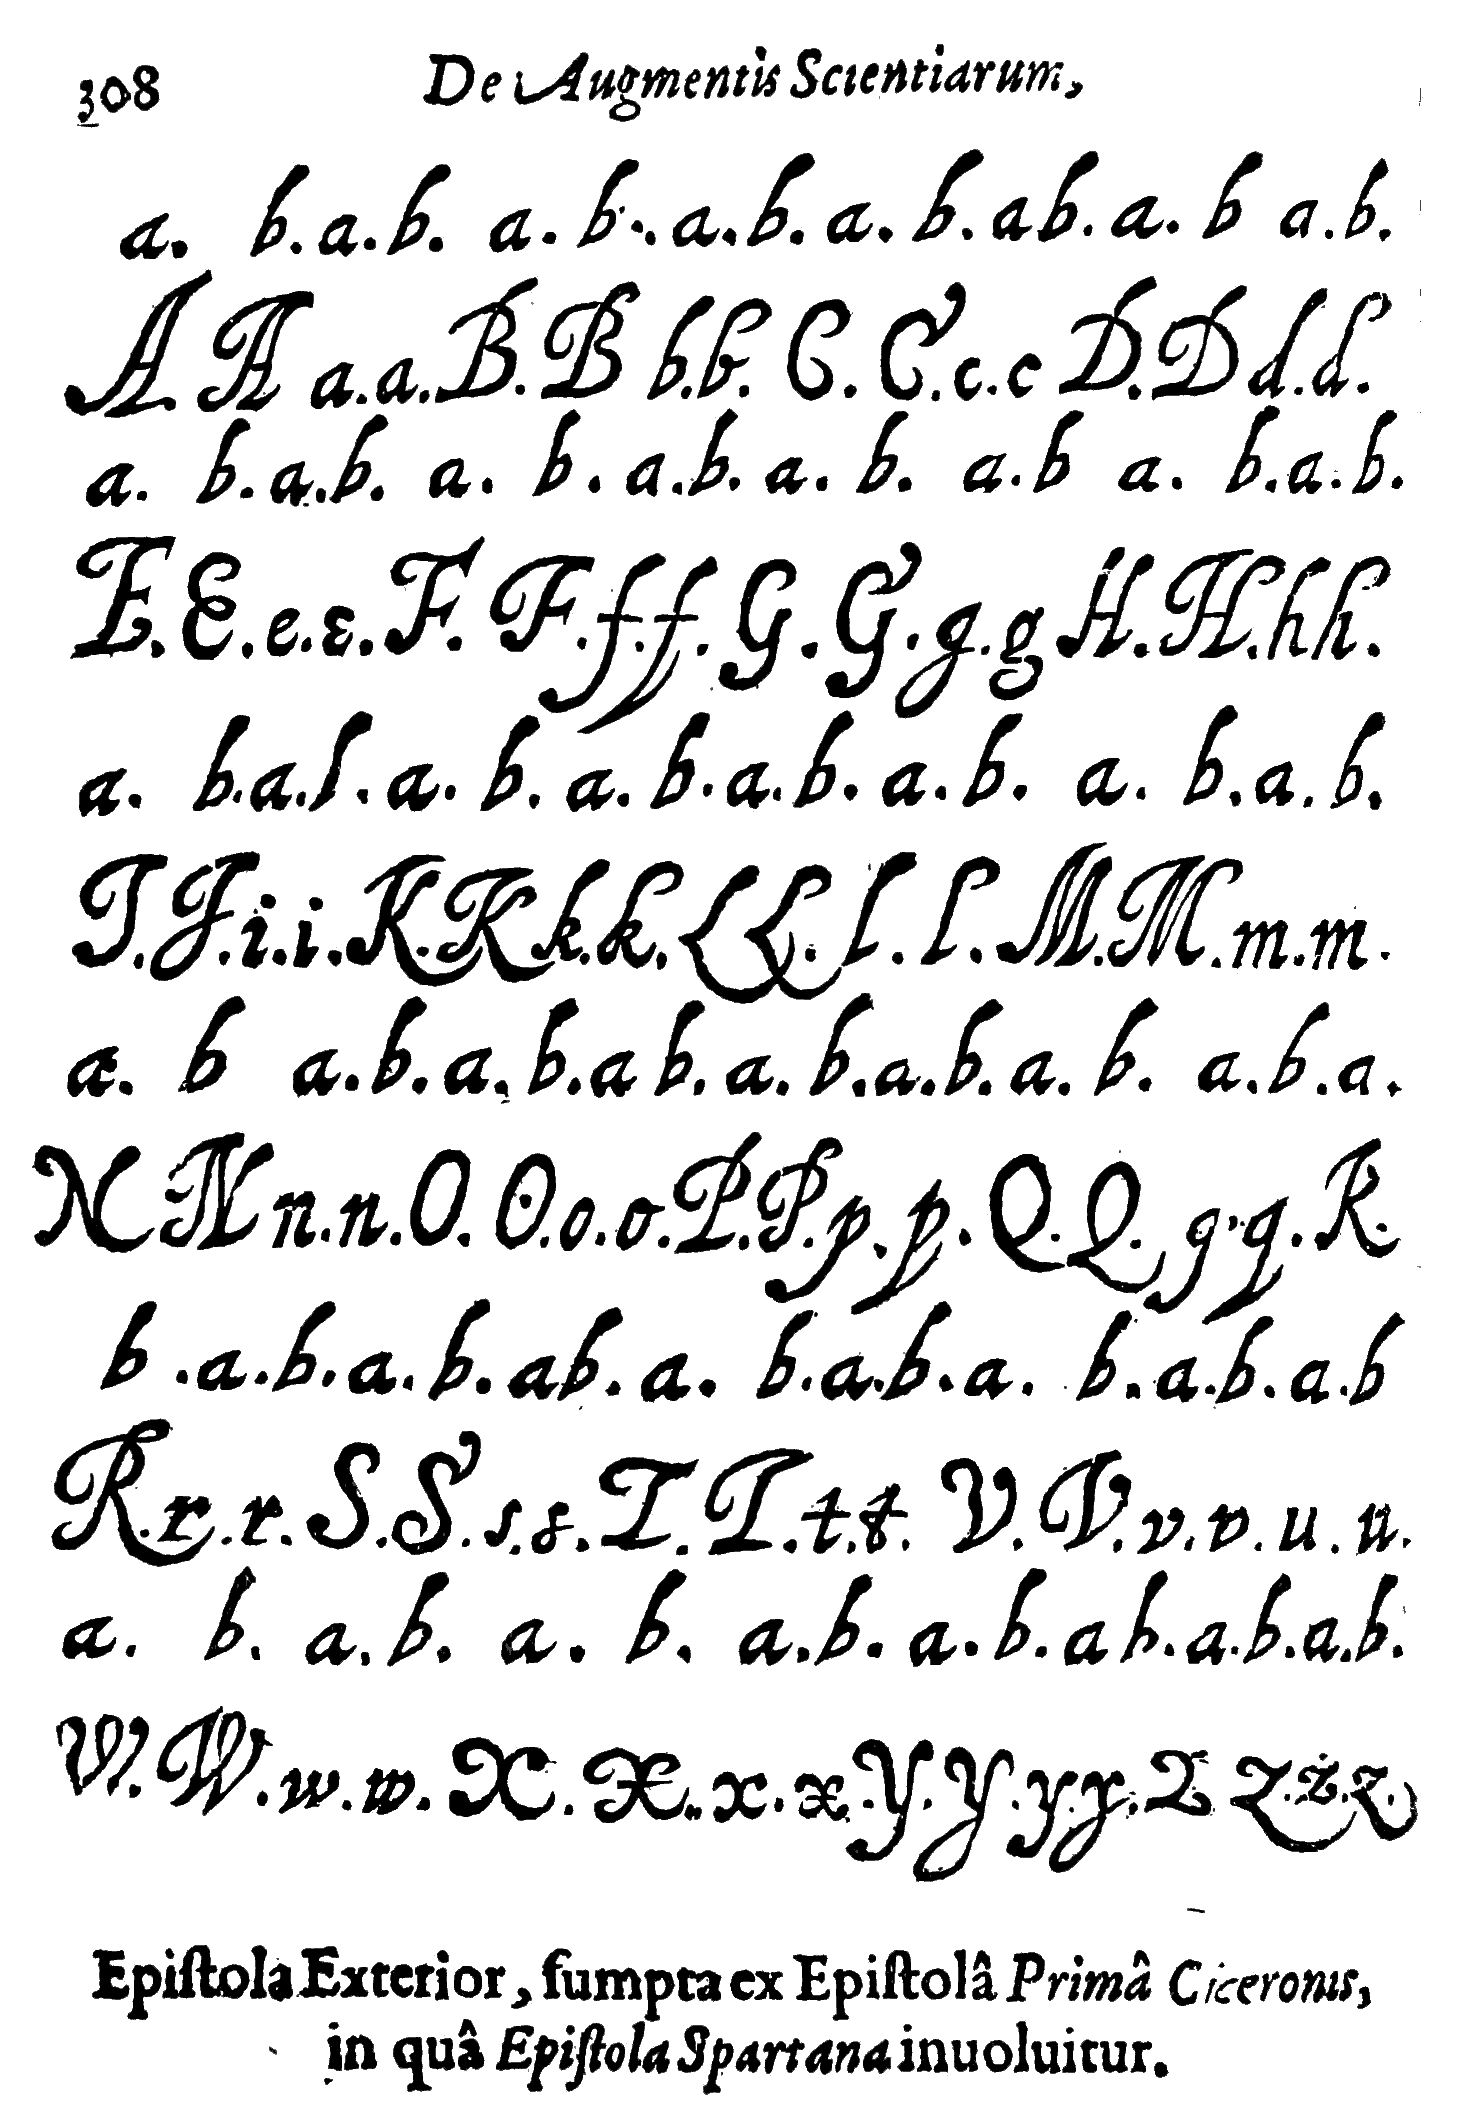 308 De Augmentis Scientiarum,
a. b.a.b. a. b.. a.b. a. b.ab.a. b a.b.
A A a.a.B.B b.b. C. C.c.c D.D d.d.
a. b.a.b. a. b. a.b. a. b. a.b a. b.a.b.
E.E.e.e.F. F.f.f. G.G.g.g H.H.hh.
a. b.a.l.a. b. a. b.a.b. a.b. a. b.a.b.
I.I.i.i.K.K k.k.L L.l.l.M M.m.m.
a. b a.b.a.b.a b. a. b.a.b.a. b. a.b.a.
N N n.n.O. O.o.o.P.P.p.p.Q.Q.q.q.R.
b .a.b.a.b.ab.a. b.a.b.a. b.a.b.a.b
R.r.r.S.S.s.s.T.T.t.t. V.V.v.v.u.u.
a. b. a.b. a. b. a.b. a.b.a b.a.b.a.b.
W.W.w.w.X.X..x.x.Y.Y.y.y.Z Z.z.z.
Epiſtola Exterior, ſumpta ex Epiſtolâ Primâ Ciceronis,
in quâ Epiſtola Spartana inuoluitur.